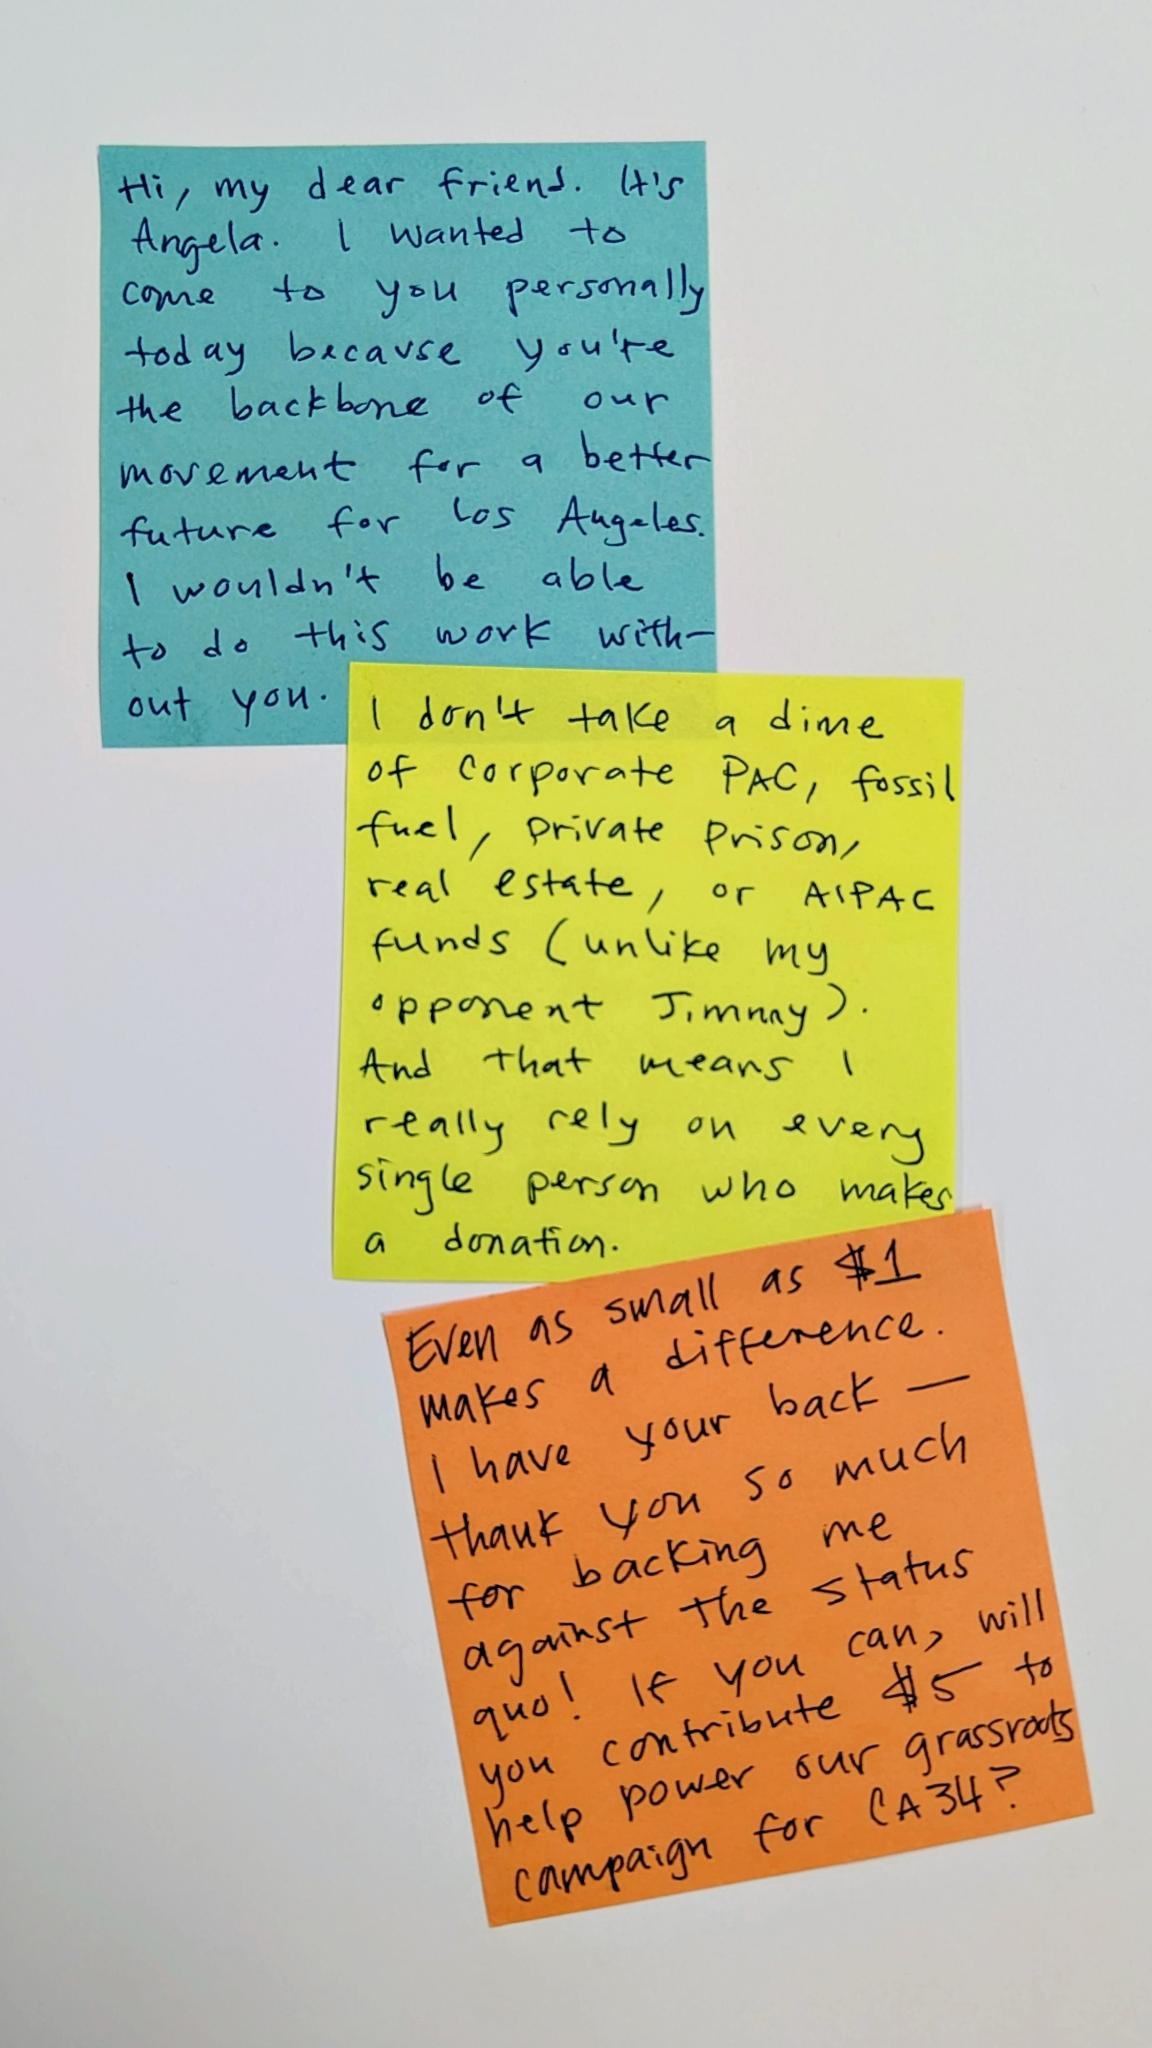 Hi, my dear friend. It's
Angela. I wanted to
come to you personally
today because you're
the backbone of our
movement for a better
future for Los Angeles.
I wouldn't be able
to do this work with-
out you.
I don't take a dime
of corporate PAC, fossil
fuel, private prison,
real estate, or AIPAC
funds (unlike my
opponent Jimmy).
And that means I
really rely on every
single person who makes
a donation.
Even as small as $1
makes a difference.
I have your back —
thank you so much
for backing me
against the status
quo! If you can, will
you contribute $5 to
help power our grassroots
campaign for CA34?